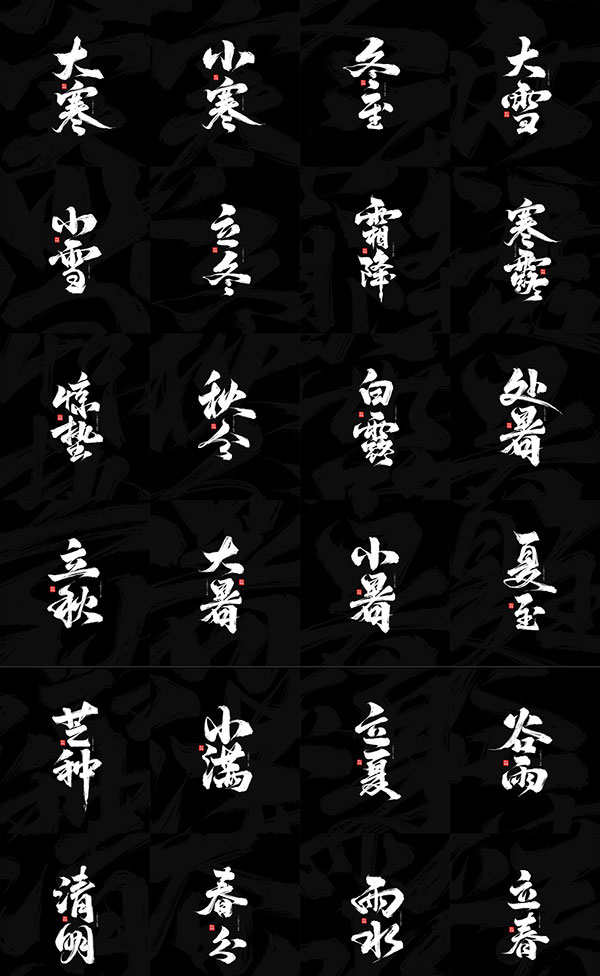 大寒
小寒
冬至
大雪
小雪
立冬
霜降
寒露
惊蛰
秋分
白露
处暑
立秋
大暑
小暑
夏至
芒种
小满
立夏
谷雨
清明
春分
雨水
立春